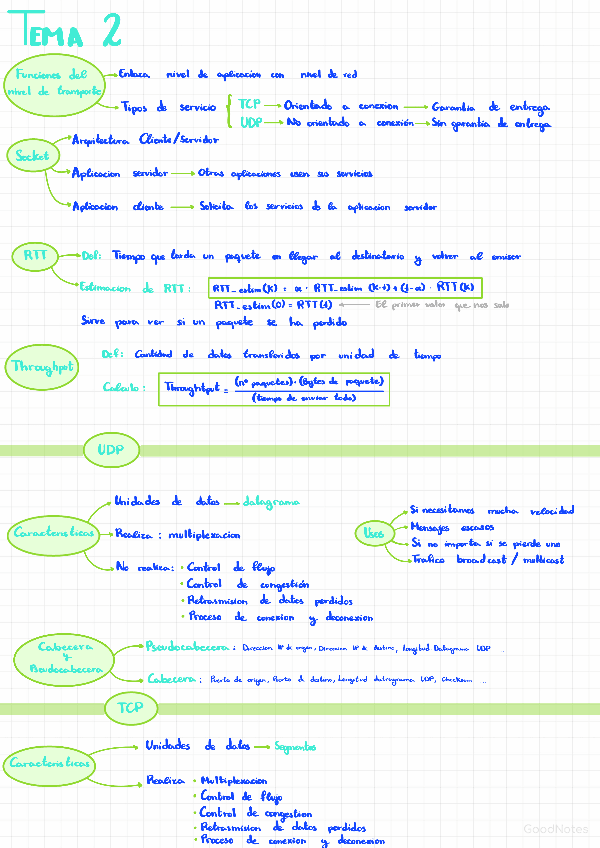 TEMA 2
Funciones del
nivel de transporte
Enlaza nivel de aplicacion con nivel de red
Tipos de servicio
TCP Orientado a conexion Garantia de entrega
UDP No orientado a conexión Sin garantia de entrega
Socket
Arquitectura Cliente/Servidor
Aplicacion servidor Otras aplicaciones usen sus servicios
Aplicacion cliente Solicita los servicios de la aplicacion servidor
RTT
Def: Tiempo que tarda un paquete en llegar al destinatario y volver al emisor
Estimacion de RTT: RTT_estim(K) = α · RTT_estim (K-1) + (1-α) · RTT(K)
RTT_estim(0) = RTT(1) El primer valor que nos sale
Sirve para ver si un paquete se ha perdido
Throughput
Def: Cantidad de datos transferidos por unidad de tiempo
Calculo: Throughtput = (nº paquetes)·(Bytes de paquete)
(tiempo de enviar todo)
UDP
Caracteristicas
Unidades de datos datagrama
Realiza: multiplexacion
No realiza: • Control de flujo
• Control de congestión
• Retrasmision de datos perdidos
• Proceso de conexion y deconexion
Usos
Si necesitamos mucha velocidad
Mensajes escasos
Si no importa si se pierde uno
Trafico broadcast / multicast
Cabecera
y
Pseudocabecera
Pseudocabecera: Direccion IP de origen, Direccion IP de destino, Longitud Datagrama UDP ...
Cabecera: Puerto de origen, Puerto de destino, Longitud datagrama UDP, Checksum ...
TCP
Caracteristicas
Unidades de datos Segmentos
Realiza • Multiplexacion
• Control de flujo
• Control de congestion
• Retrasmision de datos perdidos
• Proceso de conexion y deconexion
GoodNotes